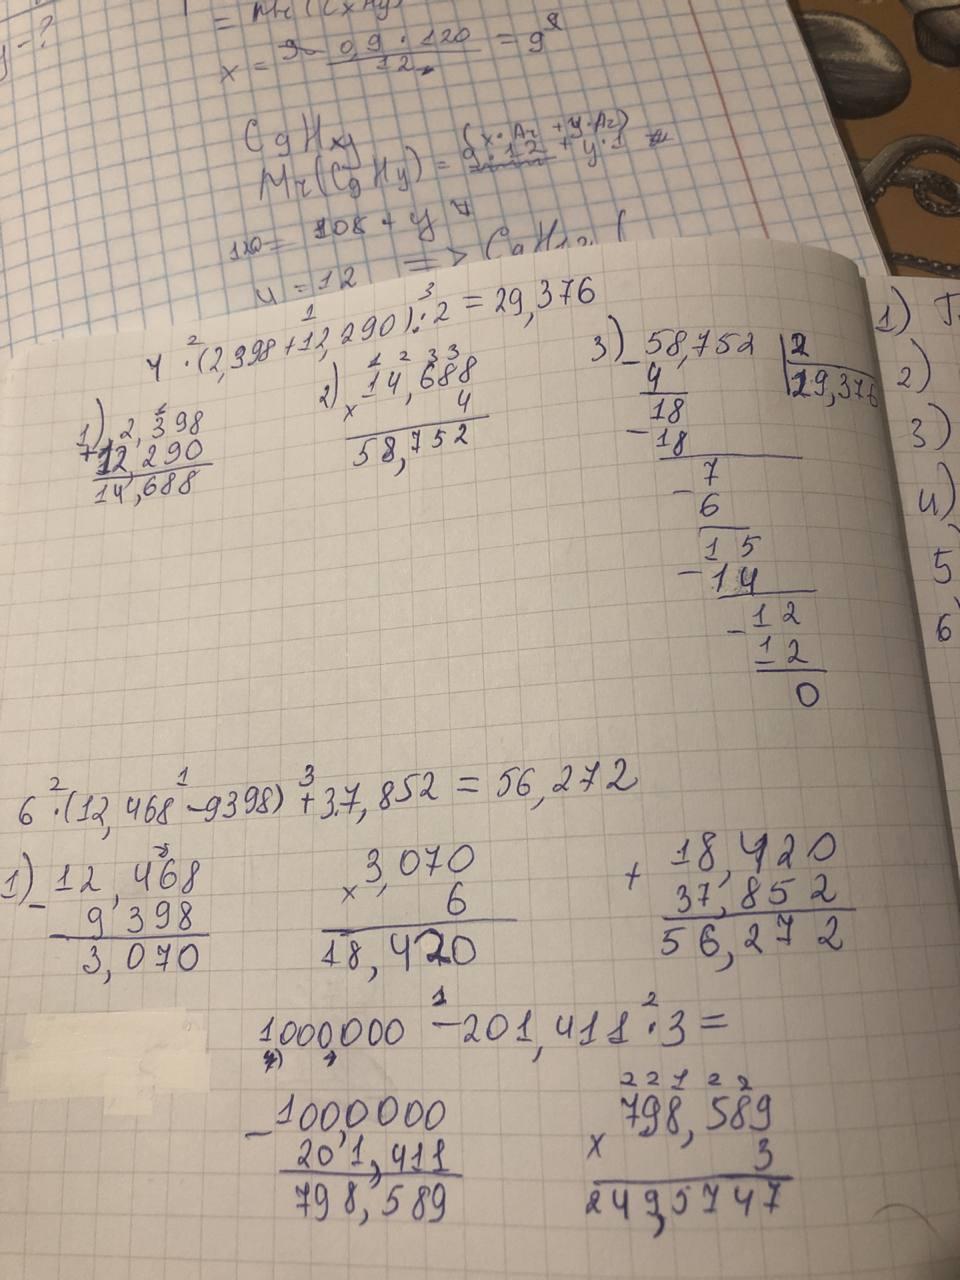 = Mr(CxHy)
y - ?
x = 0,9 · 120 / 12 = 9
C9Hxy
(x·Ar + y·Ar)
Mr(C9Hy) = 9·12 + y·1
120 = 108 + y
y = 12 => C9H12
4 · (2,398 + 12,290) : 2 = 29,376
2 1 3
1) 2,398
+ 12,290
14,688
2) 14,688
× 4
58,752
3) 58,752 | 2
29,376
- 4
18
- 18
7
- 6
15
- 14
12
- 12
0
1)
2)
3)
4)
5)
6)
6 · (12,468 - 9398) + 37,852 = 56,272
2 1 3
1) 12,468
- 9,398
3,070
3,070
× 6
18,420
18,420
+ 37,852
56,272
1000,000 - 201,411 · 3 =
1 2
1000,000
- 201,411
798,589
2 2 1 2 2
798,589
× 3
249,5747